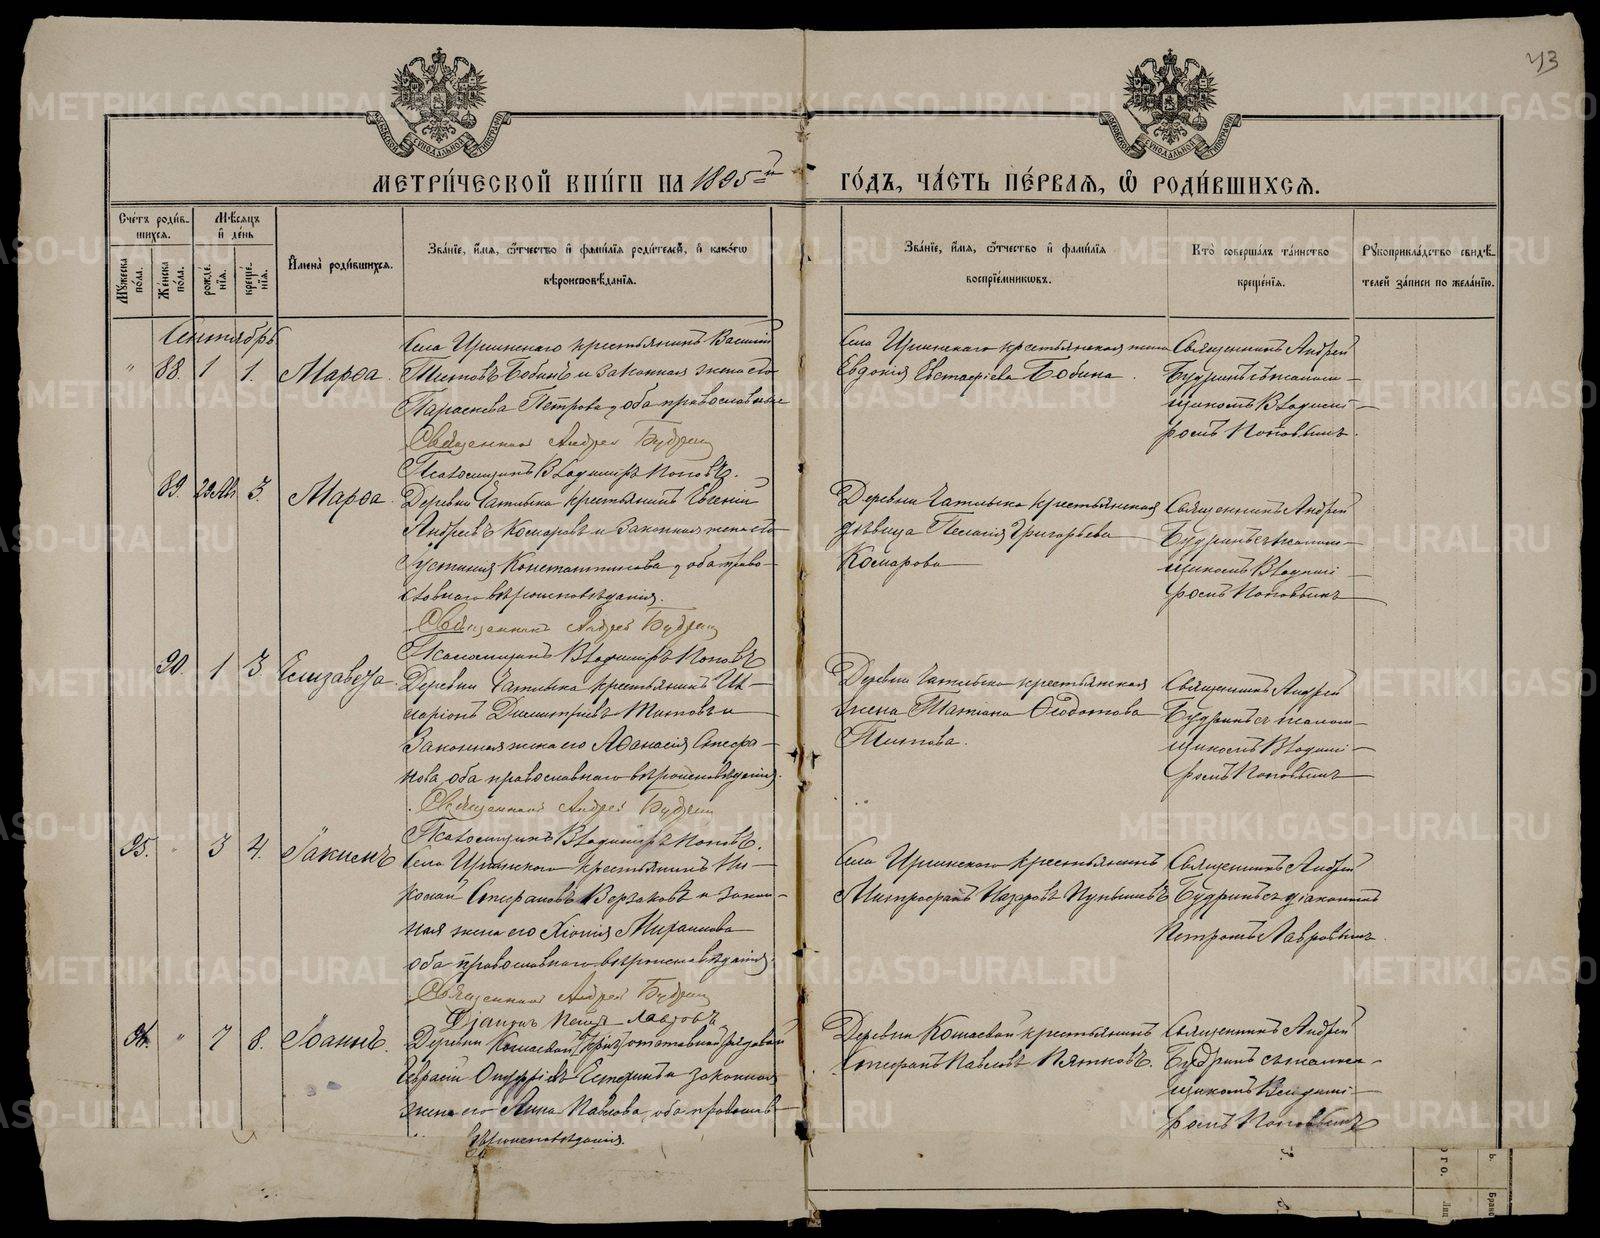 43
МЕТРИ́ЧЕСКОЙ КНИ́ГИ НА 1895й ГО́ДЪ, ЧА́СТЬ ПЕ́РВАЯ, Ѡ РОДИ́ВШИХСЯ.
Сче́тъ роди́в-
шихся.
Мѣ́сяцъ
и де́нь
Мꙋжеска
по́ла.
Же́нска
по́ла.
рожде́-
нїя.
креще́-
нїя.
И҆мена̀ роди́вшихся.
Зва́нїе, и҆мя, ѻ҆́тчество и҆ фами́лїя роди́телей, и҆ како́гѡ
вѣроисповѣ́данїя.
Зва́нїе, и҆мя, ѻ҆́тчество и҆ фами́лїя
воспрїе́мниковъ.
Кто̀ соверша́лъ та́инство
креще́нїя.
Рꙋкоприкла́дство свидѣ́-
телей за́писи по жела́нїю.
Сентябрь
" 88. 1 1. Марѳа.
Села крестьянинъ Василій
Титовъ Бобинъ и законная жена его
Параскева Петрова, оба православные
Священникъ Андрей Будринъ
Псаломщикъ Владиміръ Поповъ.
Села крестьянская жена
Евдокія Евстафіева Бобина
Священникъ Андрей
Будринъ съ псалом-
щикомъ Владимі-
ромъ Поповымъ.
89. 29 Авг 3. Марѳа
Деревни крестьянинъ Евгеній
Андреевъ Комаровъ и законная жена его
Устинія Константинова, оба право-
славнаго вѣроисповѣданія.
Священникъ Андрей Будринъ
Псаломщикъ Владиміръ Поповъ
Деревни крестьянская
дѣвица Пелагія Григорьева
Комарова
Священникъ Андрей
Будринъ съ псалом-
щикомъ Владимі-
ромъ Поповымъ
90. 1 3. Елизавета.
Деревни крестьянинъ Ил-
ларіонъ Димитріевъ Титовъ и
законная жена его Аѳанасія Стефа-
нова, оба православнаго вѣроисповѣданія.
Священникъ Андрей Будринъ
Псаломщикъ Владиміръ Поповъ.
Деревни крестьянская
жена Татіана Ѳеодотова
Титова.
Священникъ Андрей
Будринъ съ псалом-
щикомъ Владимі-
ромъ Поповымъ
95. " 3 4. Іакимъ
Села крестьянинъ Ни-
колай Стефановъ Верзаковъ и закон-
ная жена его Хіонія
оба православнаго вѣроисповѣданія.
Священникъ Андрей Будринъ
Діаконъ Петръ Лавровъ
Села крестьянинъ
Митрофанъ Назаровъ
Священникъ Андрей
Будринъ съ діакономъ
Петромъ Лавровымъ.
96. " 7 8. Іоаннъ.
Деревни Кошаевой отставной рядовой
и законная
жена его Анна Павлова, оба православ-
вѣроисповѣданія.
Деревни Кошаевой крестьянинъ
Стефанъ Павловъ Пятковъ.
Священникъ Андрей
Будринъ съ псалом-
щикомъ Владимі-
ромъ Поповымъ